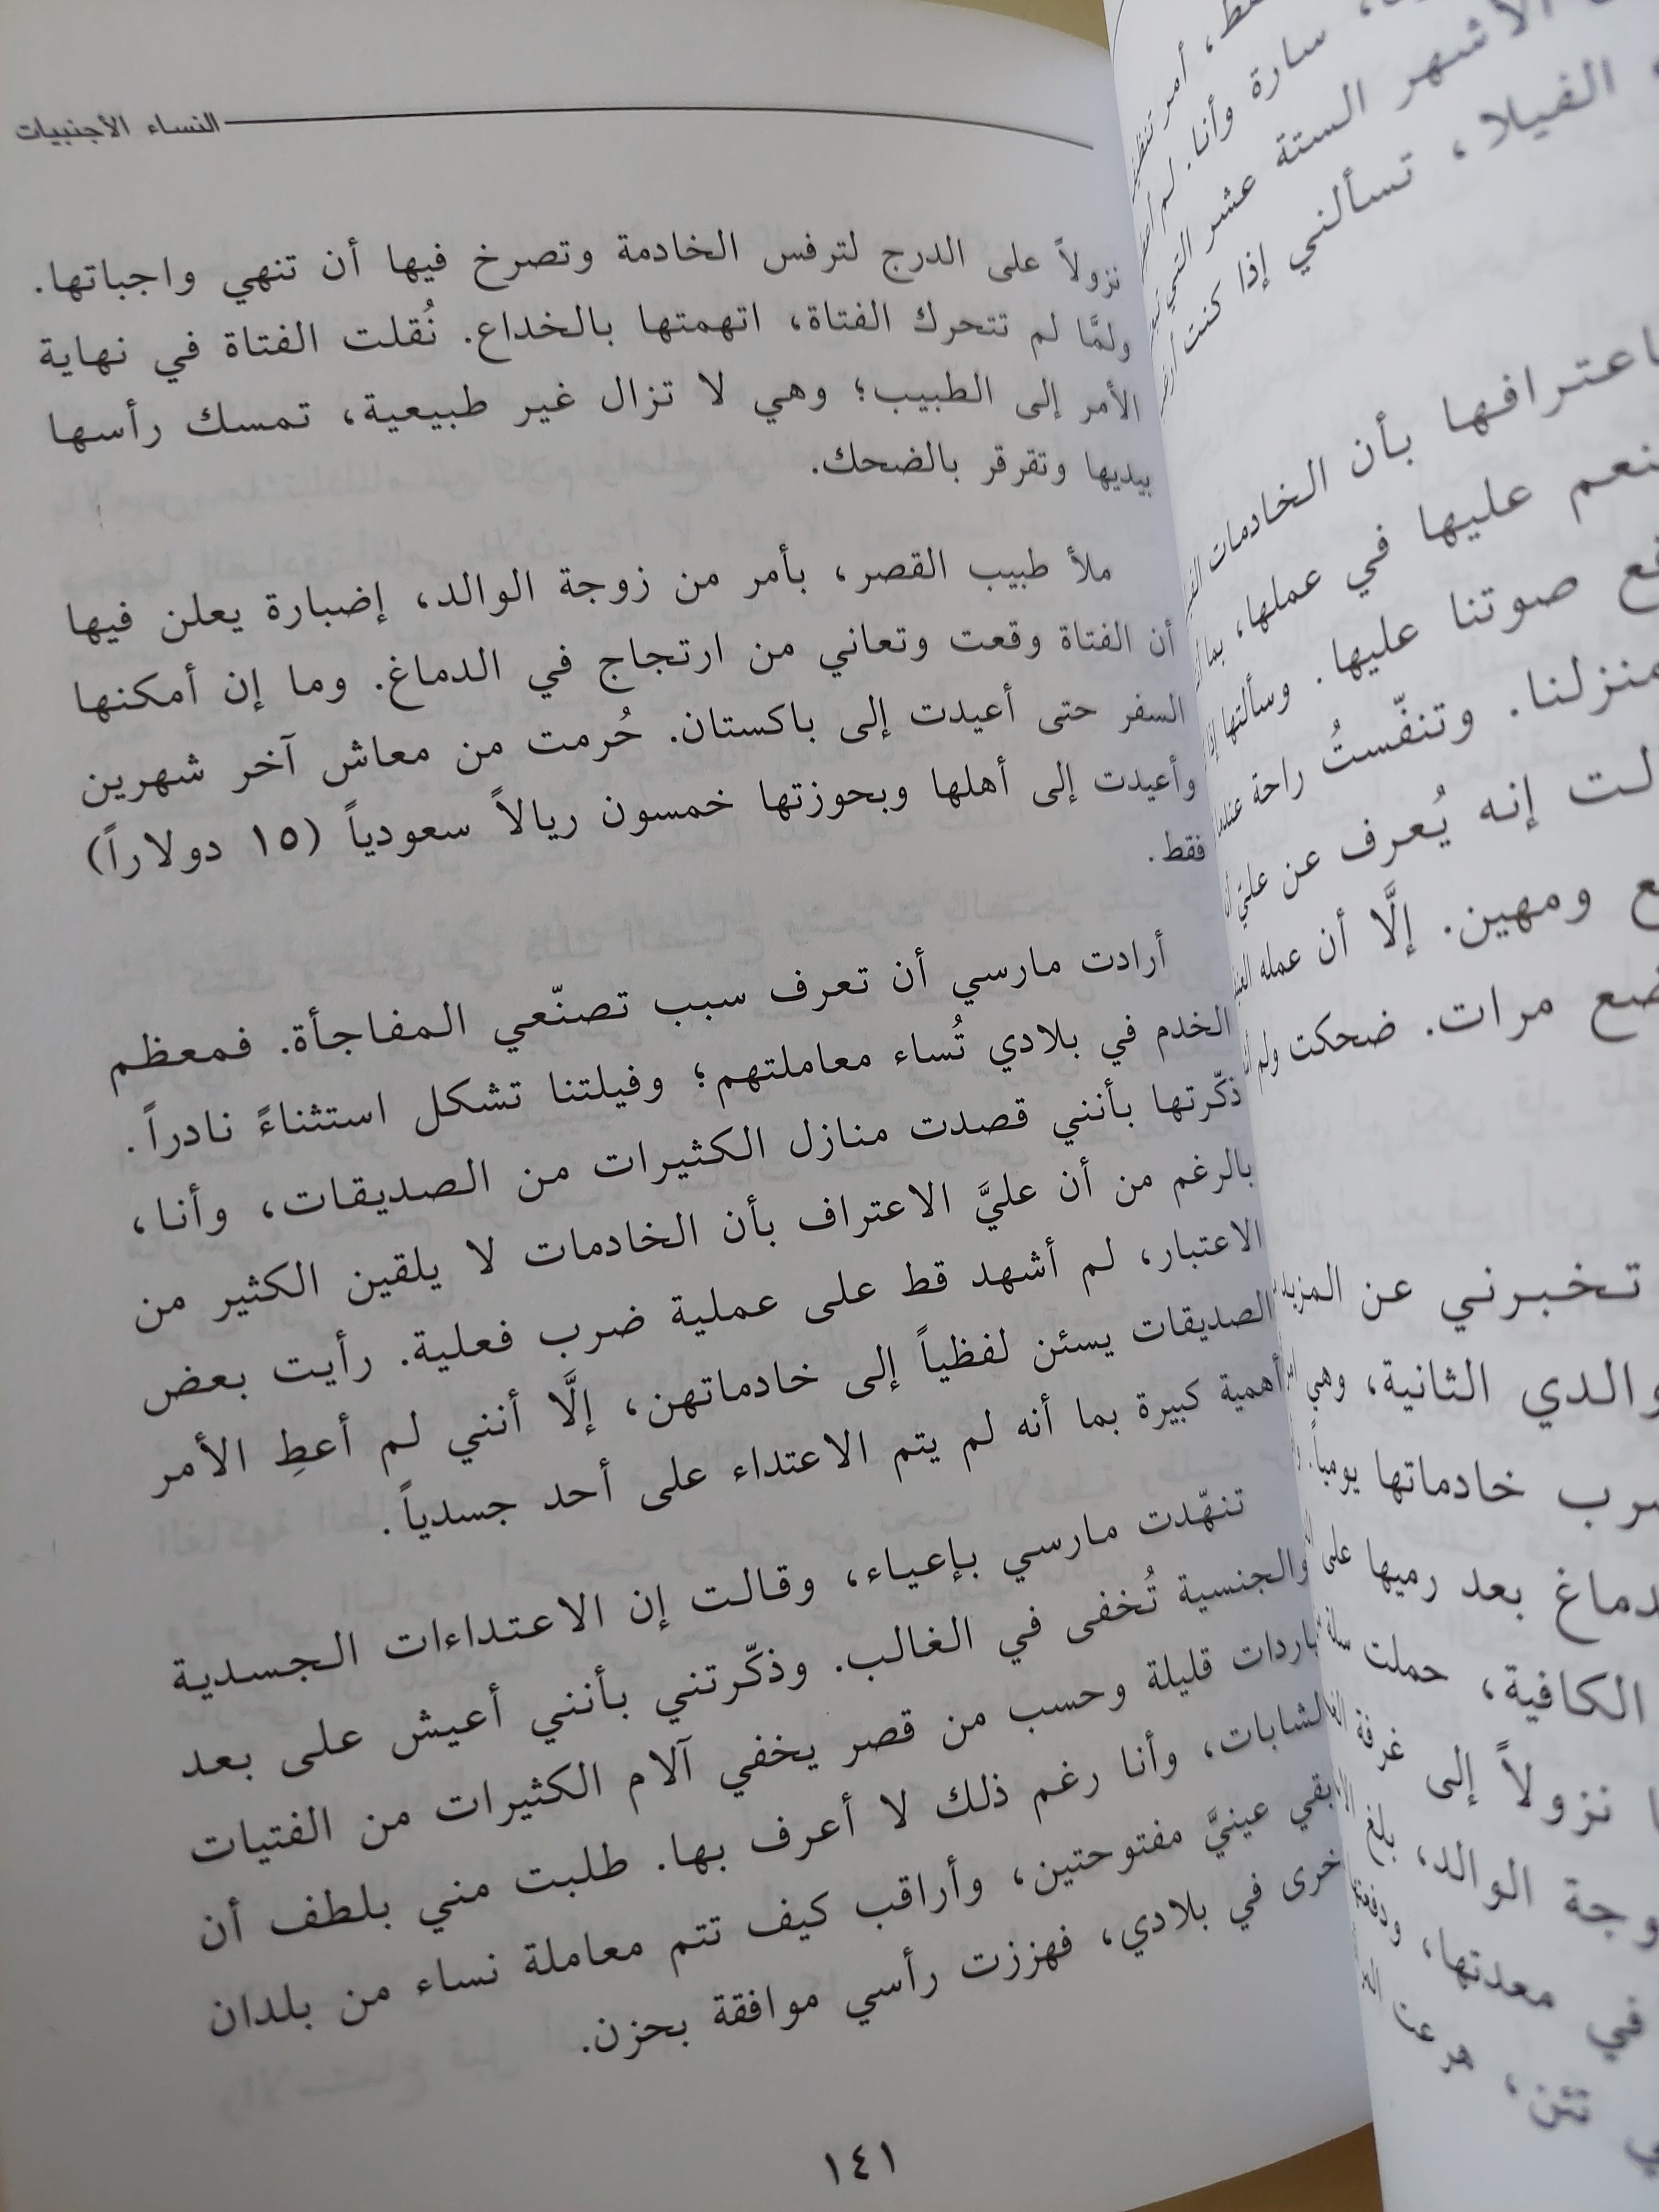 أمر تنظيف
سارة وأنا. لم
الأشهر الستة عشر التي
الفيلا، تسألني إذا كنت
اعترافها بأن الخادمات
عليها في عملها،
صوتنا عليها. وسألتها إذا
منزلنا. وتنفّستُ راحة عندما
إنه يُعرف عن عليّ
ومهين. إلَّا أن عمله
مرات. ضحكت ولم
تخبرني عن المزيد
والدي الثانية، وهي
خادماتها يومياً.
بعد رميها على
الكافية، حملت سلة
نزولاً إلى غرفة
الوالد، بلغ
في معدتها، ودفعتها
النساء الأجنبيات
نزولاً على الدرج لترفس الخادمة وتصرخ فيها أن تنهي واجباتها.
ولمَّا لم تتحرك الفتاة، اتهمتها بالخداع. نُقلت الفتاة في نهاية
الأمر إلى الطبيب؛ وهي لا تزال غير طبيعية، تمسك رأسها
بيديها وتقرقر بالضحك.
ملأ طبيب القصر، بأمر من زوجة الوالد، إضبارة يعلن فيها
أن الفتاة وقعت وتعاني من ارتجاج في الدماغ. وما إن أمكنها
السفر حتى أعيدت إلى باكستان. حُرمت من معاش آخر شهرين
وأعيدت إلى أهلها وبحوزتها خمسون ريالاً سعودياً (١٥ دولاراً)
فقط.
أرادت مارسي أن تعرف سبب تصنّعي المفاجأة. فمعظم
الخدم في بلادي تُساء معاملتهم؛ وفيلتنا تشكل استثناءً نادراً.
ذكّرتها بأنني قصدت منازل الكثيرات من الصديقات، وأنا،
بالرغم من أن عليَّ الاعتراف بأن الخادمات لا يلقين الكثير من
الاعتبار، لم أشهد قط على عملية ضرب فعلية. رأيت بعض
الصديقات يسئن لفظياً إلى خادماتهن، إلَّا أنني لم أعطِ الأمر
أهمية كبيرة بما أنه لم يتم الاعتداء على أحد جسدياً.
تنهّدت مارسي بإعياء، وقالت إن الاعتداءات الجسدية
والجنسية تُخفى في الغالب. وذكّرتني بأنني أعيش على بعد
ياردات قليلة وحسب من قصر يخفي آلام الكثيرات من الفتيات
الشابات، وأنا رغم ذلك لا أعرف بها. طلبت مني بلطف أن
أبقي عينيَّ مفتوحتين، وأراقب كيف تتم معاملة نساء من بلدان
أخرى في بلادي، فهززت رأسي موافقة بحزن.
١٤١